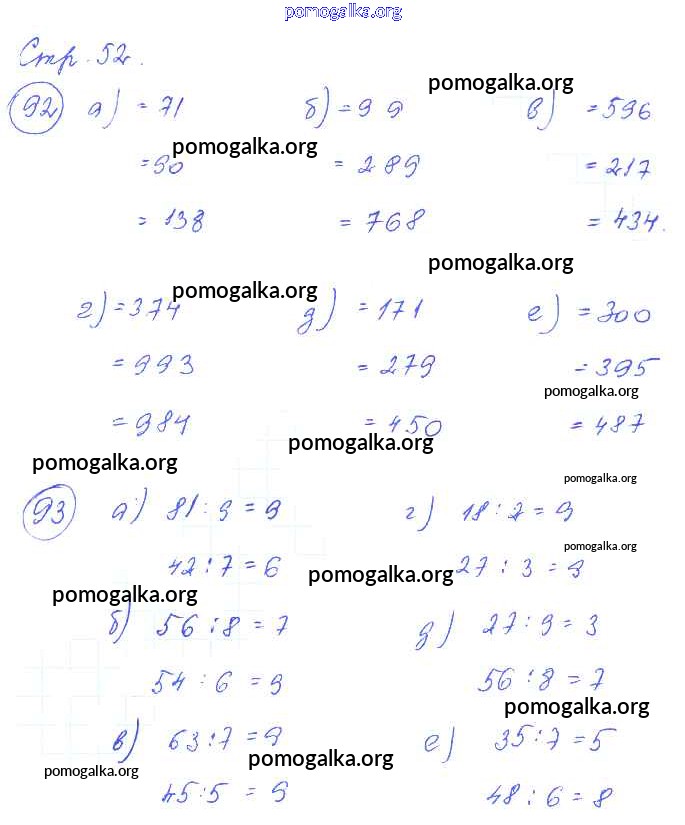 pomogalka.org
Стр. 52.
pomogalka.org
92 а) = 71 б) = 99 в) = 596
pomogalka.org
= 90 = 289 = 217
= 138 = 768 = 434.
pomogalka.org
pomogalka.org
г) = 374 д) = 171 е) = 300
= 993 = 279 = 395
pomogalka.org
= 984 = 450 = 487
pomogalka.org
pomogalka.org
pomogalka.org
93 а) 81 : 9 = 9 г) 18 : 2 = 9
pomogalka.org
42 : 7 = 6 27 : 3 = 9
pomogalka.org
pomogalka.org
б) 56 : 8 = 7 д) 27 : 9 = 3
54 : 6 = 9 56 : 8 = 7
pomogalka.org
в) 63 : 7 = 9 е) 35 : 7 = 5
pomogalka.org
pomogalka.org
45 : 5 = 9 48 : 6 = 8